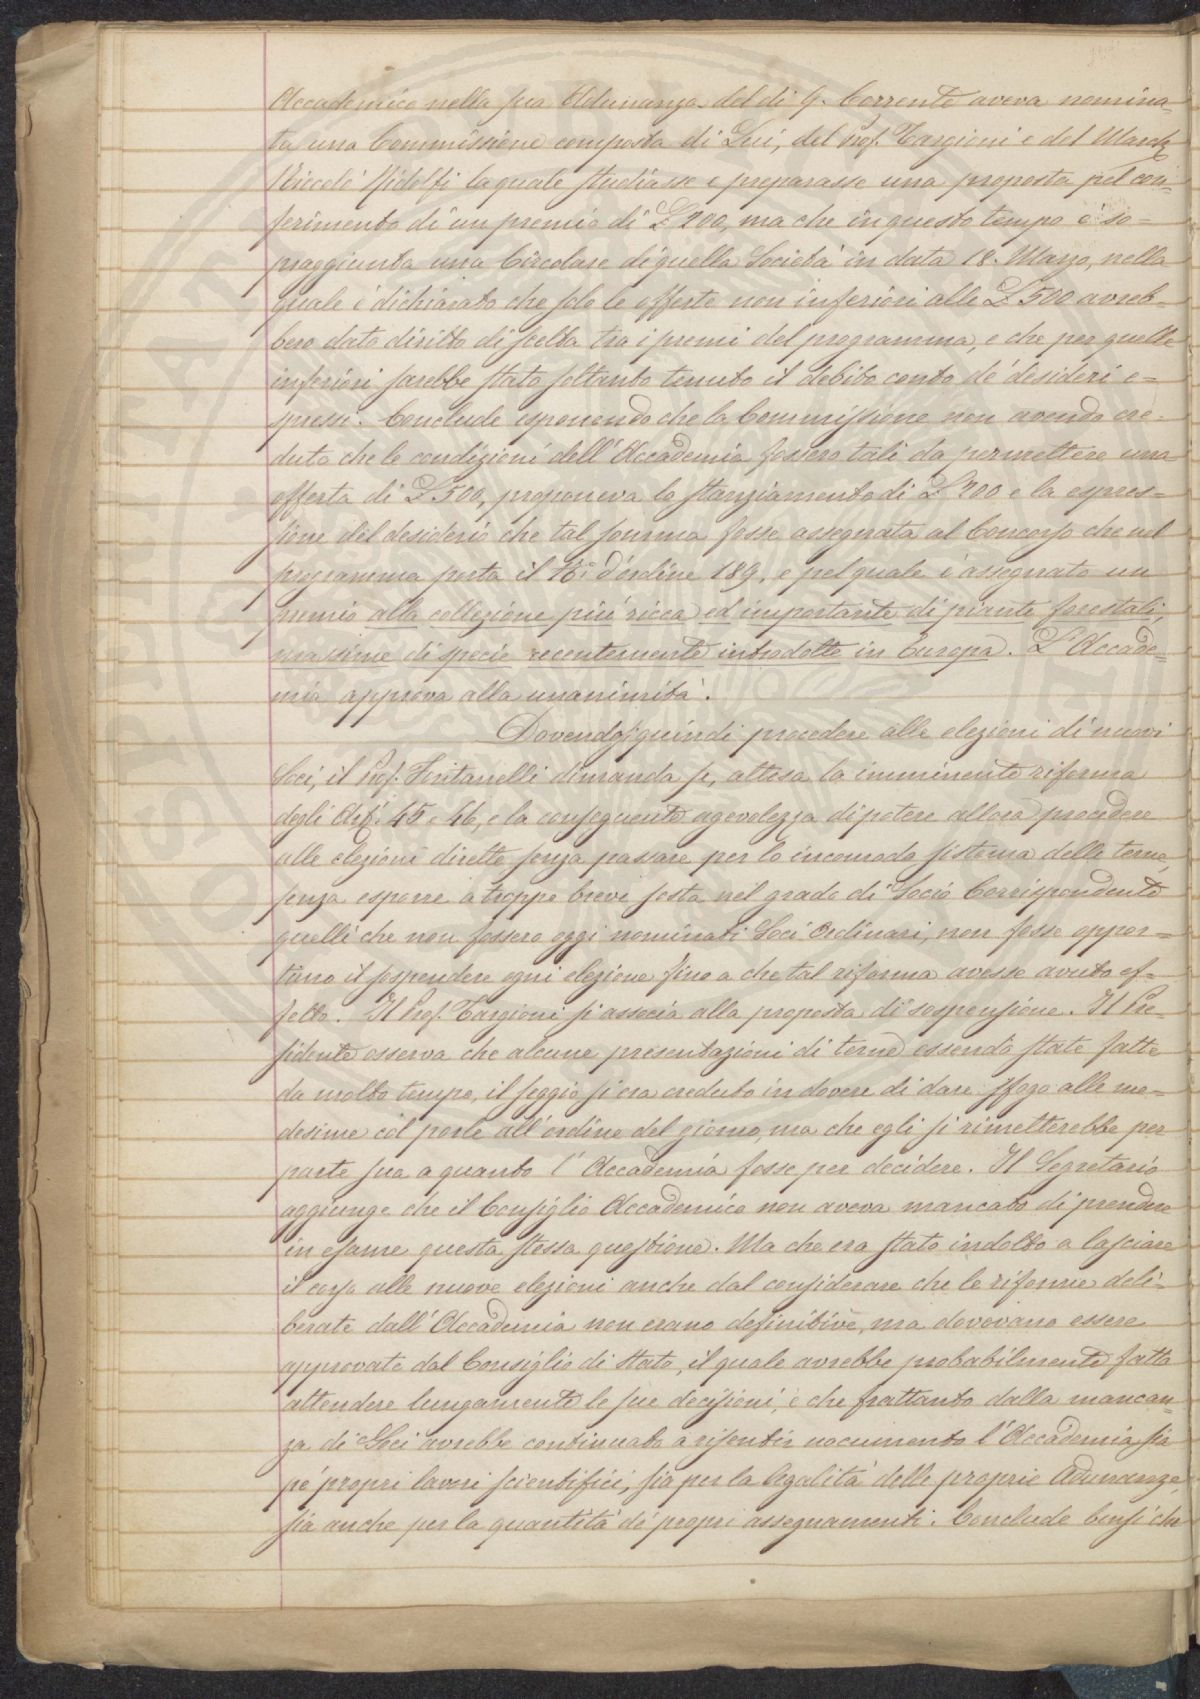 Accademico nella sua Adunanza del dì 9. Corrente aveva nomina-
ta una Commissione composta di Lui, del Prof. Targioni e del March.
Niccolò Ridolfi la quale studiasse e preparasse una proposta pel con-
ferimento di un premio di £ 200, ma che in questo tempo è so-
praggiunta una Circolare di quella Società in data 18. Marzo, nella
quale è dichiarato che solo le offerte non inferiori alle £ 500 avreb-
bero dato diritto di scelta tra i premi del programma, e che per quelle
inferiori sarebbe stato soltanto tenuto il debito conto de' desideri e-
spressi. Conclude esponendo che la Commissione non avendo cre-
duto che le condizioni dell'Accademia fossero tali da permettere una
offerta di £ 500, proponeva lo stanziamento di £ 200 e la espres-
sione del desiderio che tal somma fosse assegnata al Concorso che nel
programma porta il N° d'ordine 189, e pel quale è assegnato un
premio alla collezione più ricca ed importante di piante forestali,
massime di specie recentemente introdotte in Europa. L'Accade-
mia approva alla unanimità.
Dovendosi quindi procedere alle elezioni di nuovi
Soci, il Prof. Fontanelli dimanda se, attesa la imminente riforma
degli Art. 45 e 46, e la conseguente agevolezza di potere allora procedere
alle elezioni dirette senza passare per lo incomodo sistema delle terne,
senza esporre a troppo breve sosta nel grado di Socio Corrispondente
quelli che non fossero oggi nominati Soci Ordinari, non fosse oppor-
tuno il sospendere ogni elezione fino a che tal riforma avesse avuto ef-
fetto. Il Prof. Targioni si associa alla proposta di sospensione. Il Pre-
sidente osserva che alcune presentazioni di terne essendo state fatte
da molto tempo, il seggio si era creduto in dovere di dare sfogo alle me-
desime col porle all'ordine del giorno, ma che egli si rimetterebbe per
parte sua a quanto l'Accademia fosse per decidere. Il Segretario
aggiunge che il Consiglio Accademico non aveva mancato di prendere
in esame questa stessa questione. Ma che era stato indotto a lasciare
il corso alle nuove elezioni anche dal considerare che le riforme deli-
berate dall'Accademia non erano definitive, ma dovevano essere
approvate dal Consiglio di Stato, il quale avrebbe probabilmente fatto
attendere lungamente le sue decisioni, e che frattanto dalla mancan-
za di Soci avrebbe continuato a risentir nocumento l'Accademia sia
pe' propri lavori scientifici, sia per la legalità delle proprie Adunanze,
sia anche per la quantità de' propri assegnamenti. Conclude bensì che